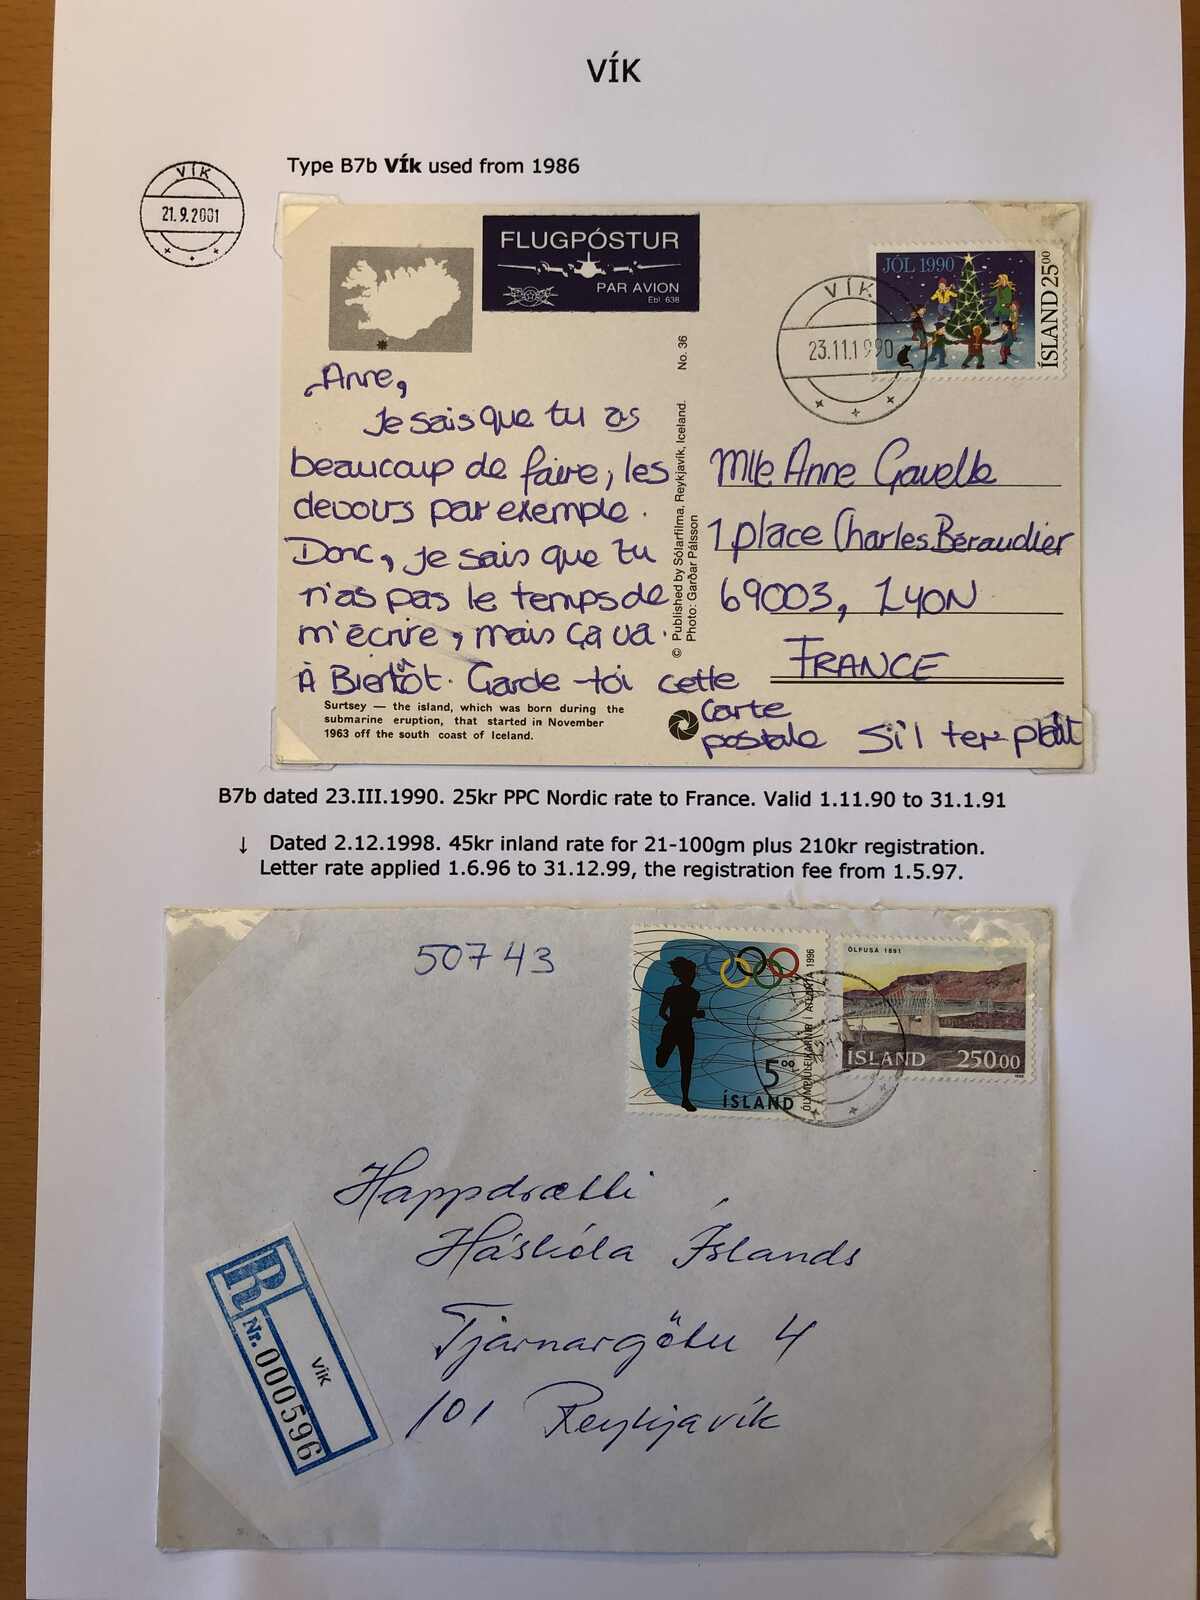 VÍK
Type B7b VÍk used from 1986
VÍK
21.9.2001
FLUGPÓSTUR
PAR AVION
Ebl. 638
JÓL 1990
ÍSLAND 25⁰⁰
VÍK
23.11.1990
Anne,
Je sais que tu as
beaucoup de faire, les
devours par exemple.
Donc, je sais que tu
n'as pas le temps de
m'écrire, mais ça va.
À Bientôt. Garde-toi cette
carte
postale s'il te plaît
No. 36
© Published by Sólarfilma, Reykjavík, Iceland.
Photo: Garðar Pálsson
Mlle Anne Gavelle
1 place Charles Béraudier
69003, LYON
FRANCE
Surtsey — the island, which was born during the
submarine eruption, that started in November
1963 off the south coast of Iceland.
B7b dated 23.III.1990. 25kr PPC Nordic rate to France. Valid 1.11.90 to 31.1.91
↓ Dated 2.12.1998. 45kr inland rate for 21-100gm plus 210kr registration.
Letter rate applied 1.6.96 to 31.12.99, the registration fee from 1.5.97.
50743
5⁰⁰
ÍSLAND
ÓLYMPÍULEIKARNIR Í ATLANTA 1996
ÖLFUSÁ 1891
ÍSLAND 250⁰⁰
Happdrætti
Háskóla Íslands
Tjarnargötu 4
101 Reykjavík
R
VÍK
Nr. 000596